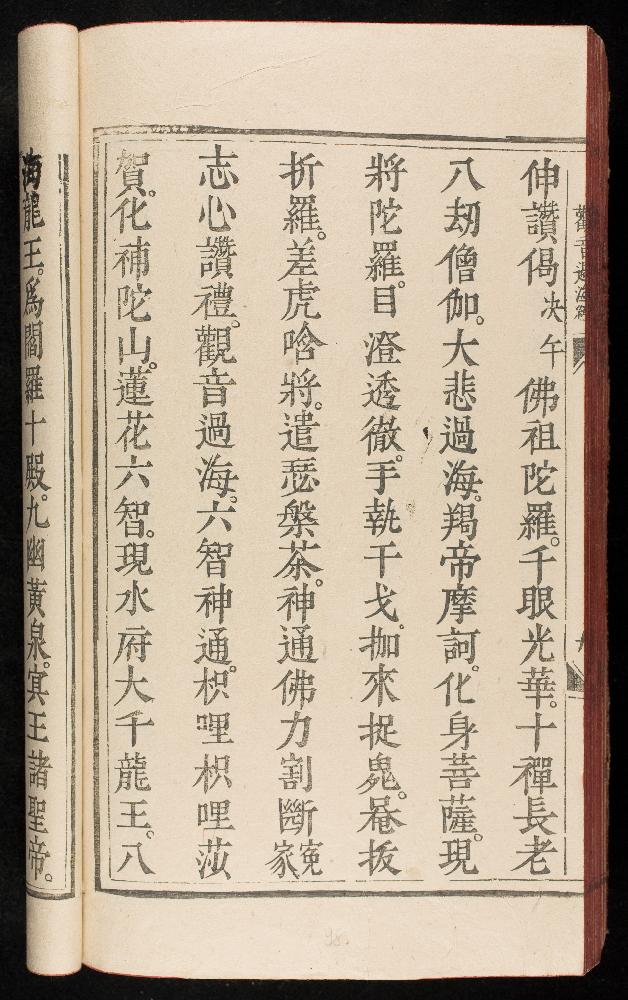 觀音過海
伸讚偈决午 佛祖陀羅。千眼光華。十禪長老
八刼僧伽。大悲過海。羯帝摩訶。化身菩薩。現
將陀羅。目澄透徹。手執干戈。拁來捉鬼。菴抜
折羅。差虎唅將。遣瑟槃茶。神通佛力割斷寃家
志心讚禮。觀音過海。六智神通。枳哩枳哩莎
賀。化補陀山。蓮花六智。現水府大千龍王。八
海龍王。為閻羅十殿。九幽黃泉。冥王諸聖帝。